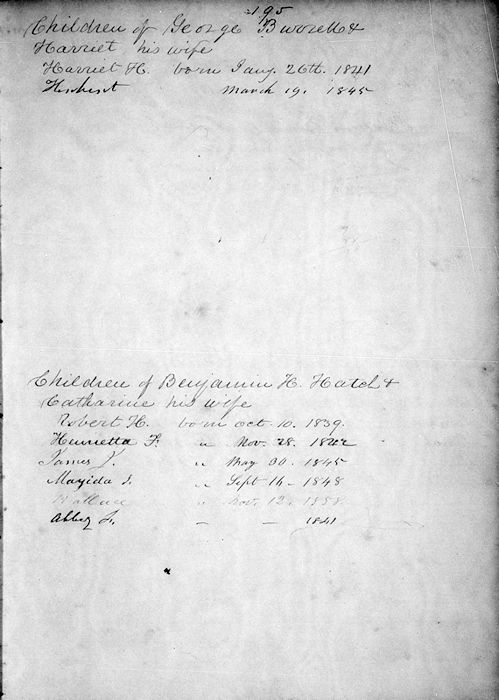 195
Children of George Burrell &
Harriet his wife
Harriet H. born Jany. 26th. 1841
Herbert March 19. 1845
Children of Benjamin H. Hatch &
Catharine his wife
Robert H. born oct. 10. 1839.
Henrietta F. " Nov. 28. 1842
James " May 30. 1845
" Sept 14 - 1848
Wallace " Nov. 12. 1858
Abby - - 1841